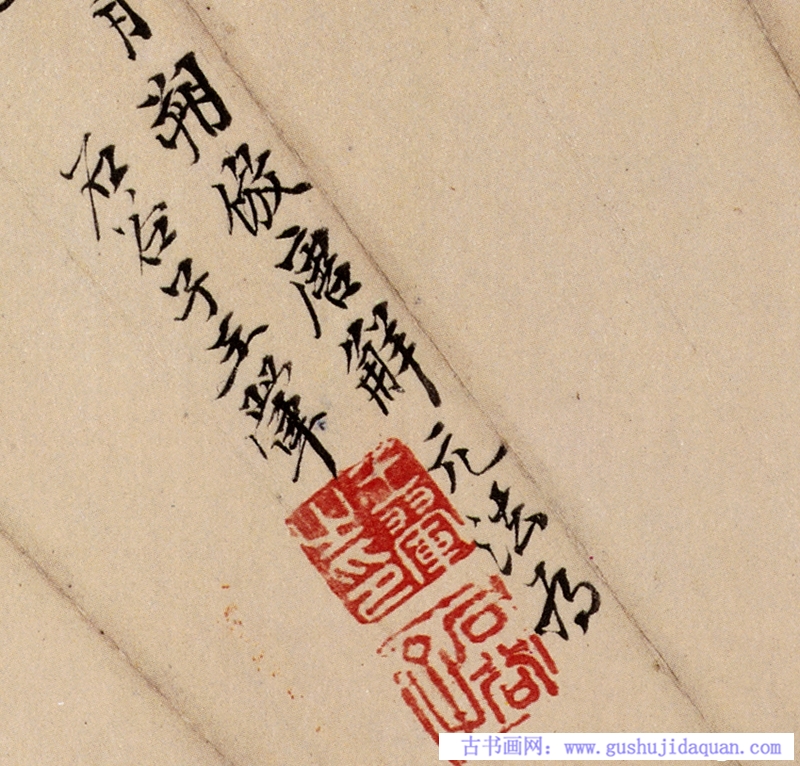 月朔倣唐解元法為
石谷子王翬
王翬之印
古书画网：www.gushujidaquan.com